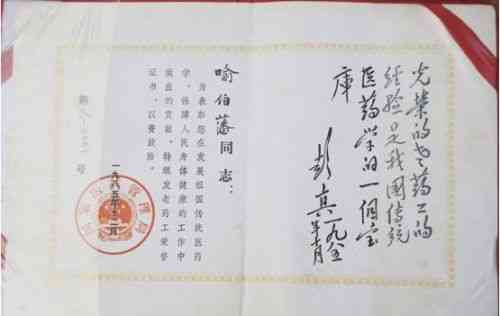 光荣的老药工的
经验是我国传统
医药学的一個宝
库
彭真一九八五
年十月
喻伯藩同志：
为表彰您在发展祖国传统医药
学、保障人民身体健康的工作中
做出的贡献，特颁发老药工荣誉
证书，以资鼓励。
国家医药管理局
一九八五年十二月
第 号